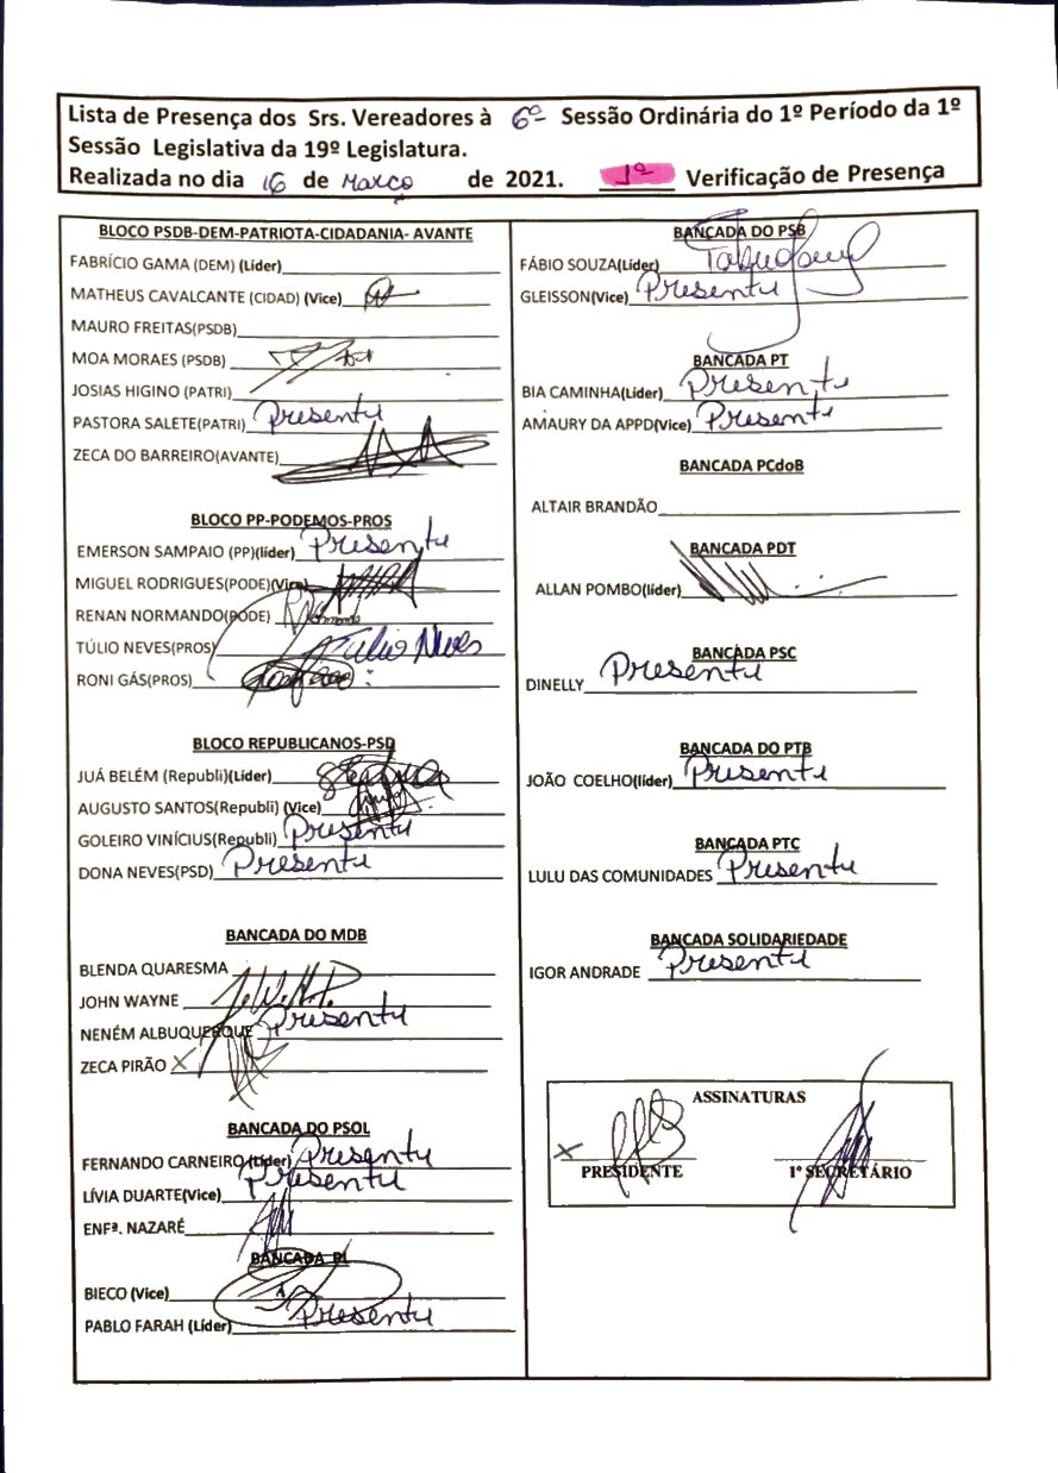 Lista de Presença dos Srs. Vereadores à 6ª Sessão Ordinária do 1º Período da 1º
Sessão Legislativa da 19º Legislatura.
Realizada no dia 16 de Março de 2021. 1ª Verificação de Presença
BLOCO PSDB-DEM-PATRIOTA-CIDADANIA- AVANTE
FABRÍCIO GAMA (DEM) (Lider)
MATHEUS CAVALCANTE (CIDAD) (Vice)
MAURO FREITAS(PSDB)
MOA MORAES (PSDB)
JOSIAS HIGINO (PATRI)
PASTORA SALETE(PATRI) Presente
ZECA DO BARREIRO(AVANTE)
BLOCO PP-PODEMOS-PROS
EMERSON SAMPAIO (PP)(líder) Presente
MIGUEL RODRIGUES(PODE)(Vice)
RENAN NORMANDO(PODE)
TÚLIO NEVES(PROS) Túlio Neves
RONI GÁS(PROS)
BLOCO REPUBLICANOS-PSD
JUÁ BELÉM (Republi)(Líder)
AUGUSTO SANTOS(Republi) (Vice)
GOLEIRO VINÍCIUS(Republi) Presente
DONA NEVES(PSD) Presente
BANCADA DO MDB
BLENDA QUARESMA
JOHN WAYNE
NENÉM ALBUQUERQUE Presente
ZECA PIRÃO X
BANCADA DO PSOL
FERNANDO CARNEIRO(Líder) Presente
LÍVIA DUARTE(Vice) Presente
ENFª. NAZARÉ
BANCADA PL
BIECO (Vice)
PABLO FARAH (Líder) Presente
BANCADA DO PSB
FÁBIO SOUZA(Líder)
GLEISSON(Vice) Presente
BANCADA PT
BIA CAMINHA(Líder) Presente
AMAURY DA APPD(Vice) Presente
BANCADA PCdoB
ALTAIR BRANDÃO
BANCADA PDT
ALLAN POMBO(líder)
BANCADA PSC
DINELLY Presente
BANCADA DO PTB
JOÃO COELHO(líder) Presente
BANCADA PTC
LULU DAS COMUNIDADES Presente
BANCADA SOLIDARIEDADE
IGOR ANDRADE Presente
ASSINATURAS
X
PRESIDENTE 1º SECRETÁRIO